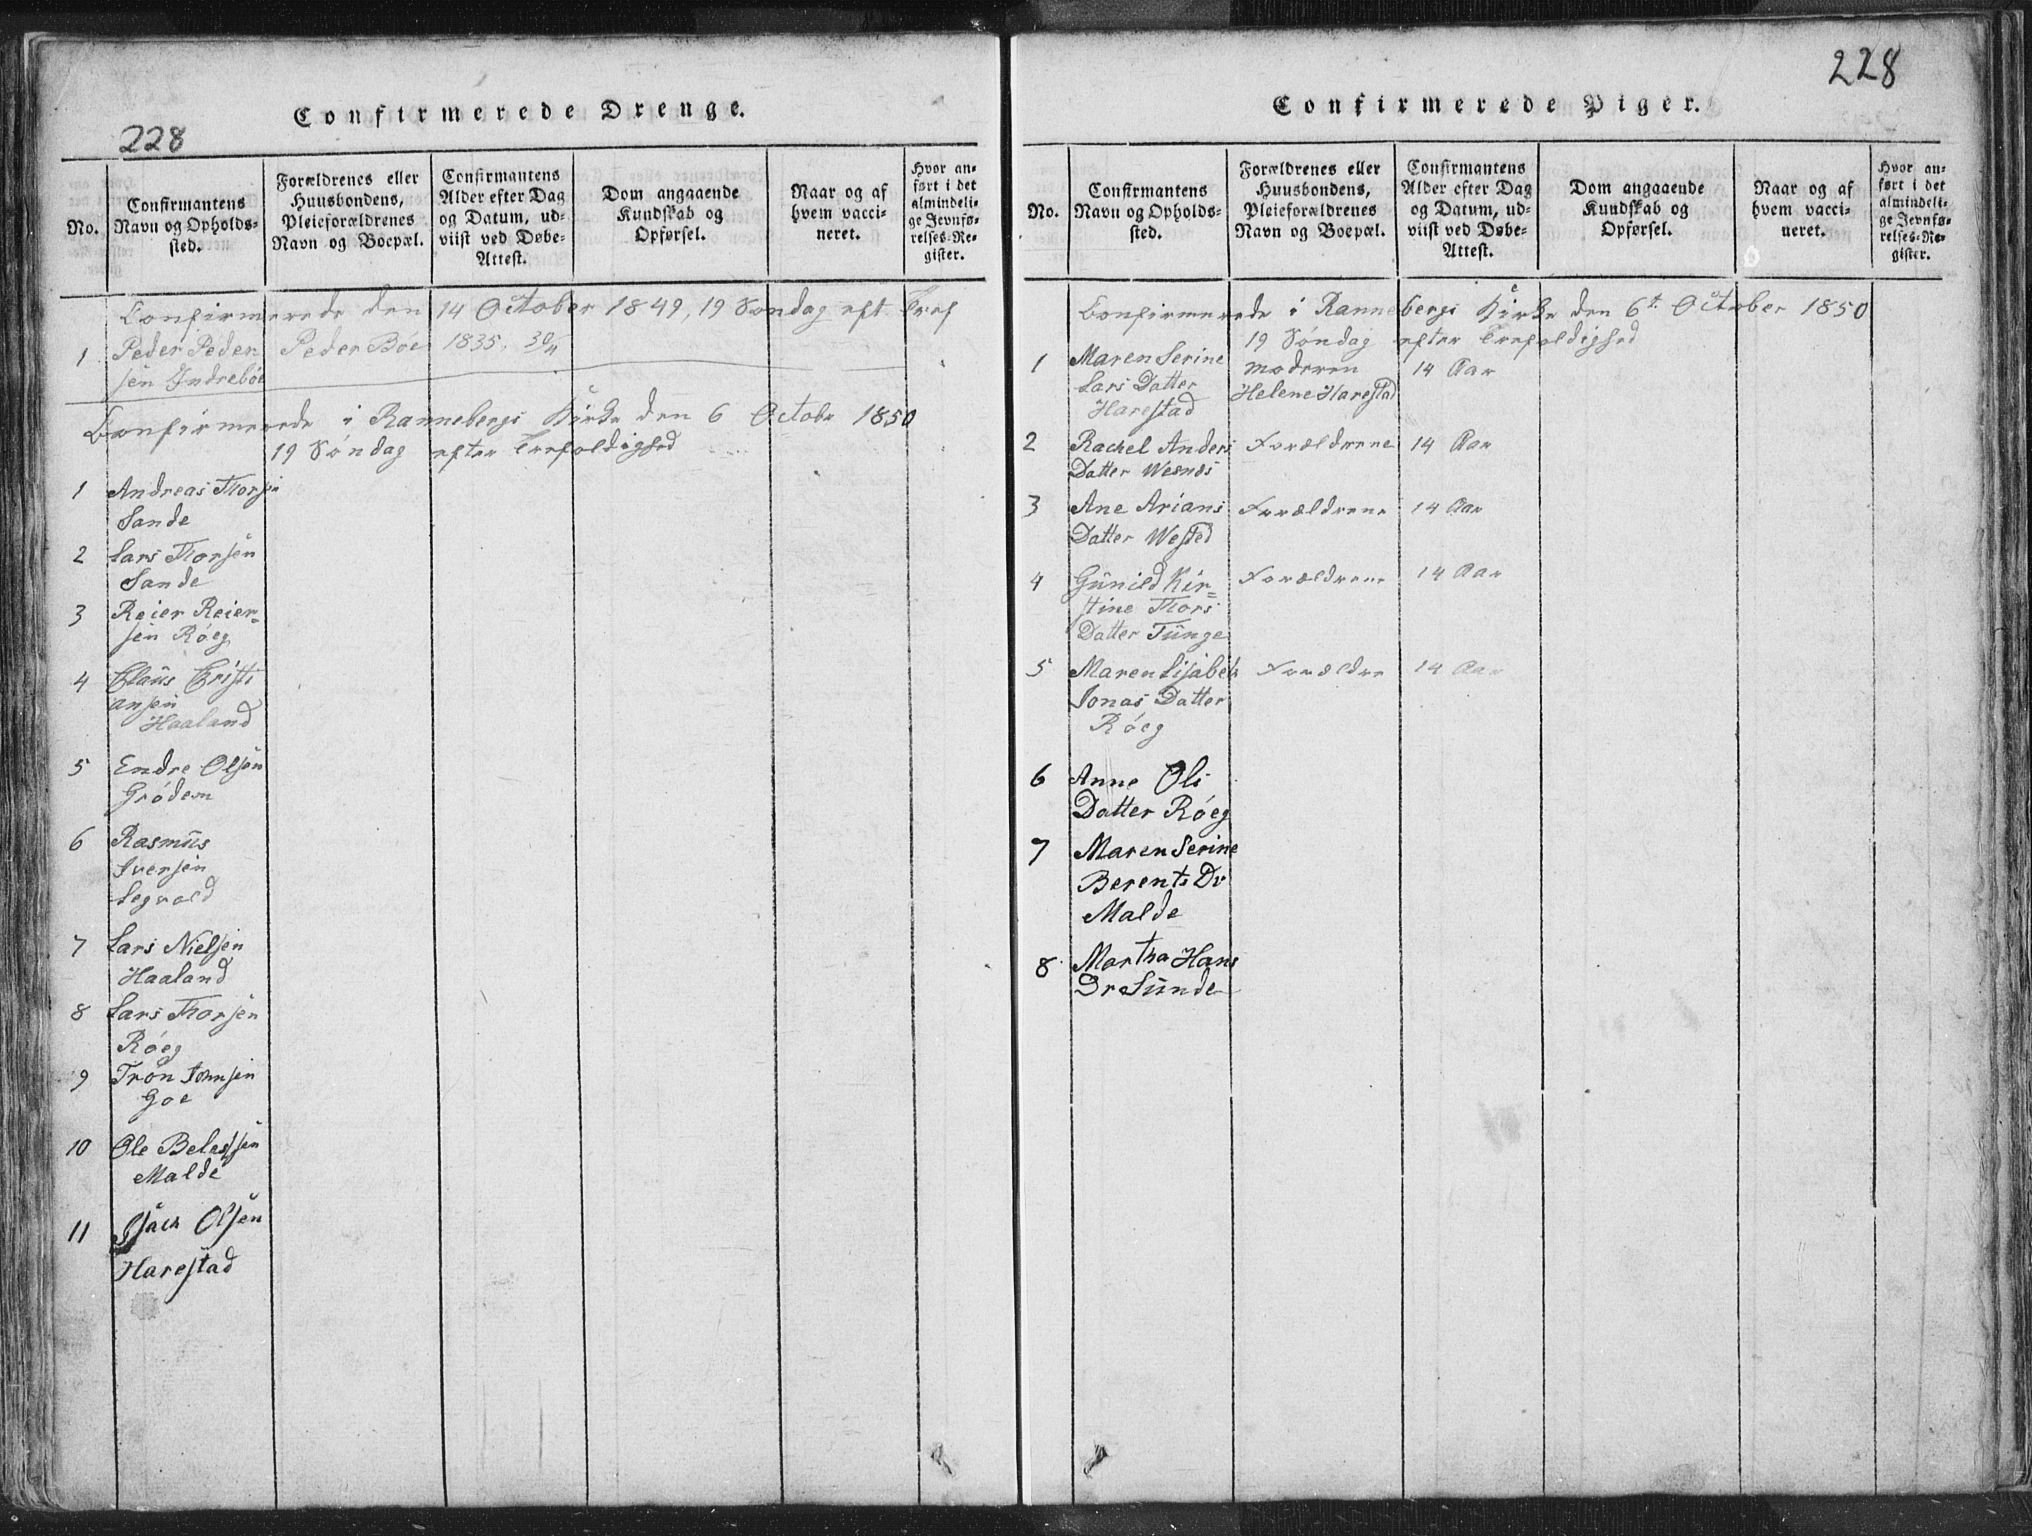 228
Confirmerede Drenge.
No.
Confirmantens
Navn og Opholds-
sted.
Forældrenes eller
Huusbondens,
Pleieforældrenes
Navn og Boepæl.
Confirmantens
Alder efter Dag
og Datum, ud-
viist ved Døbe-
Attest.
Dom angaaende
Kundskab og
Opførsel.
Naar og af
hvem vacci-
neret.
Hvor an-
ført i det
almindeli-
ge Jevnfø-
relses-Re-
gister.
Confirmerede den 14 October 1849, 19 Søndag eft Tref
1 Peder Peder Peder Böe 1835. 30/4
sen Indreböe
Confirmerede i Rannebergs Kirke den 6 Octobr 1850
19 Søndag efter Trefoldighed
1 Andreas Thorsen
Sande
2 Lars Thorsen
Sande
3 Reier Reier-
sen Röeg
4 Claus Cristi
ansen
Haaland
5 Endre Olsen
Grödem
6 Rasmus
Iversen
Legvold
7 Lars Nielsen
Haaland
8 Lars Thorsen
Röeg
9 Tron Johnsen
Goe
10 Ole Belessen
Malde
11 Isack Olsen
Harestad
228
Confirmerede Piger.
No.
Confirmantens
Navn og Opholds-
sted.
Forældrenes eller
Huusbondens,
Pleieforældrenes
Navn og Boepæl.
Confirmantens
Alder efter Dag
og Datum, ud-
viist ved Døbe-
Attest.
Dom angaaende
Kundskab og
Opførsel.
Naar og af
hvem vacci-
neret.
Hvor an-
ført i det
almindeli-
ge Jevnfø-
relses-Re-
gister.
Confirmerede i Rannebergs Kirke den 6t October 1850
19 Søndag efter Trefoldighed
1 Maren Serine moderen 14 Aar
Lars Datter Helene Harestad
Harestad
2 Rachel Anders Forældrene 14 Aar
Datter Wesnæs
3 Ane Arians Forældrene 14 Aar
Datter Wested
4 Gunild Kir- Forældrene 14 Aar
stine Thors
Datter Tunge
5 Maren Lisabeth Forældre 14 Aar
Jonas Datter
Röeg
6 Anne Ols
Datter Röeg
7 Maren Serine
Berents Dr
Malde
8 Martha Hans
Dr Sunde